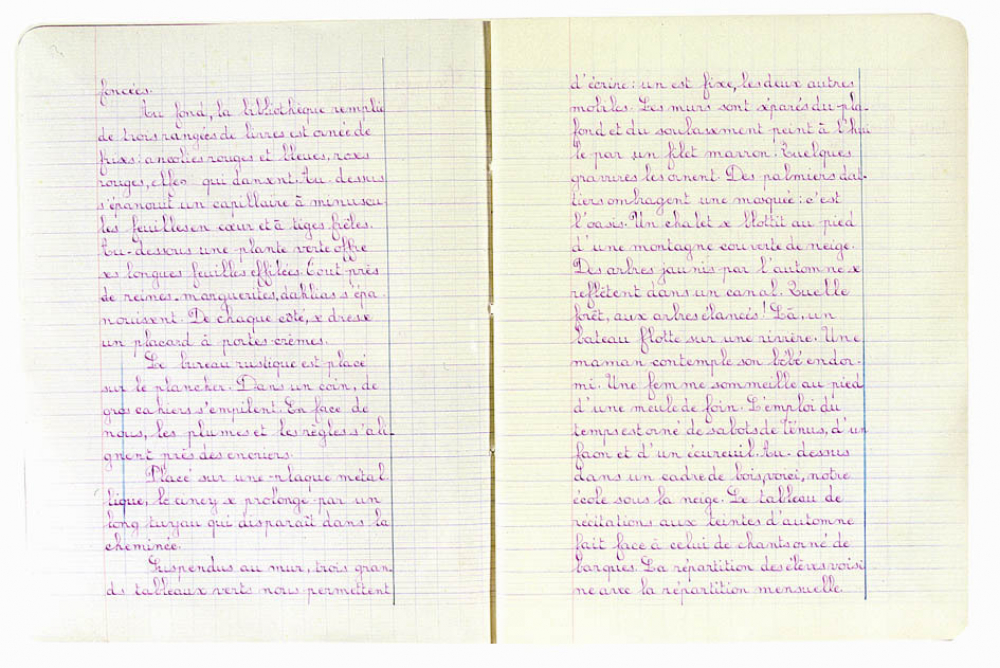 foncées.
Au fond, la bibliothèque remplie
de trois rangées de livres est ornée de
frises : ancolies rouges et bleues, roses
rouges, elfes qui dansent. Au-dessus
s'épanouit un capillaire à minuscu
les feuilles en cœur et à tiges frêles.
Au-dessous une plante verte offre
ses longues feuilles effilées. Tout près
de reines-marguerites, dahlias s'épa-
nouissent. De chaque côté, se dresse
un placard à portes crèmes.
Le bureau rustique est placé
sur le plancher. Dans un coin, de
gros cahiers s'empilent. En face de
nous, les plumes et les règles s'ali-
gnent près des encriers.
Placé sur une plaque métal
lique, le cincy se prolonge par un
long tuyau qui disparaît dans la
cheminée.
Suspendus au mur, trois gran-
ds tableaux verts nous permettent
d'écrire : un est fixe, les deux autres
mobiles. Les murs sont séparés du pla-
fond et du soubassement peint à l'hui
le par un filet marron. Quelques
gravures les ornent. Des palmiers dat-
tiers ombragent une mosquée : c'est
l'oasis. Un chalet se blottit au pied
d'une montagne couverte de neige.
Des arbres jaunis par l'automne se
reflètent dans un canal. Quelle
forêt, aux arbres élancés ! Là, un
bateau flotte sur une rivière. Une
maman contemple son bébé endor-
mi. Une femme sommeille au pied
d'une meule de foin. L'emploi du
temps est orné de sabots de Vénus, d'un
faon et d'un écureuil. Au-dessus
dans un cadre de bois, voici, notre
école sous la neige. Le tableau de
récitations aux teintes d'automne
fait face à celui de chants orné de
barques. La répartition des élèves voisi
ne avec la répartition mensuelle